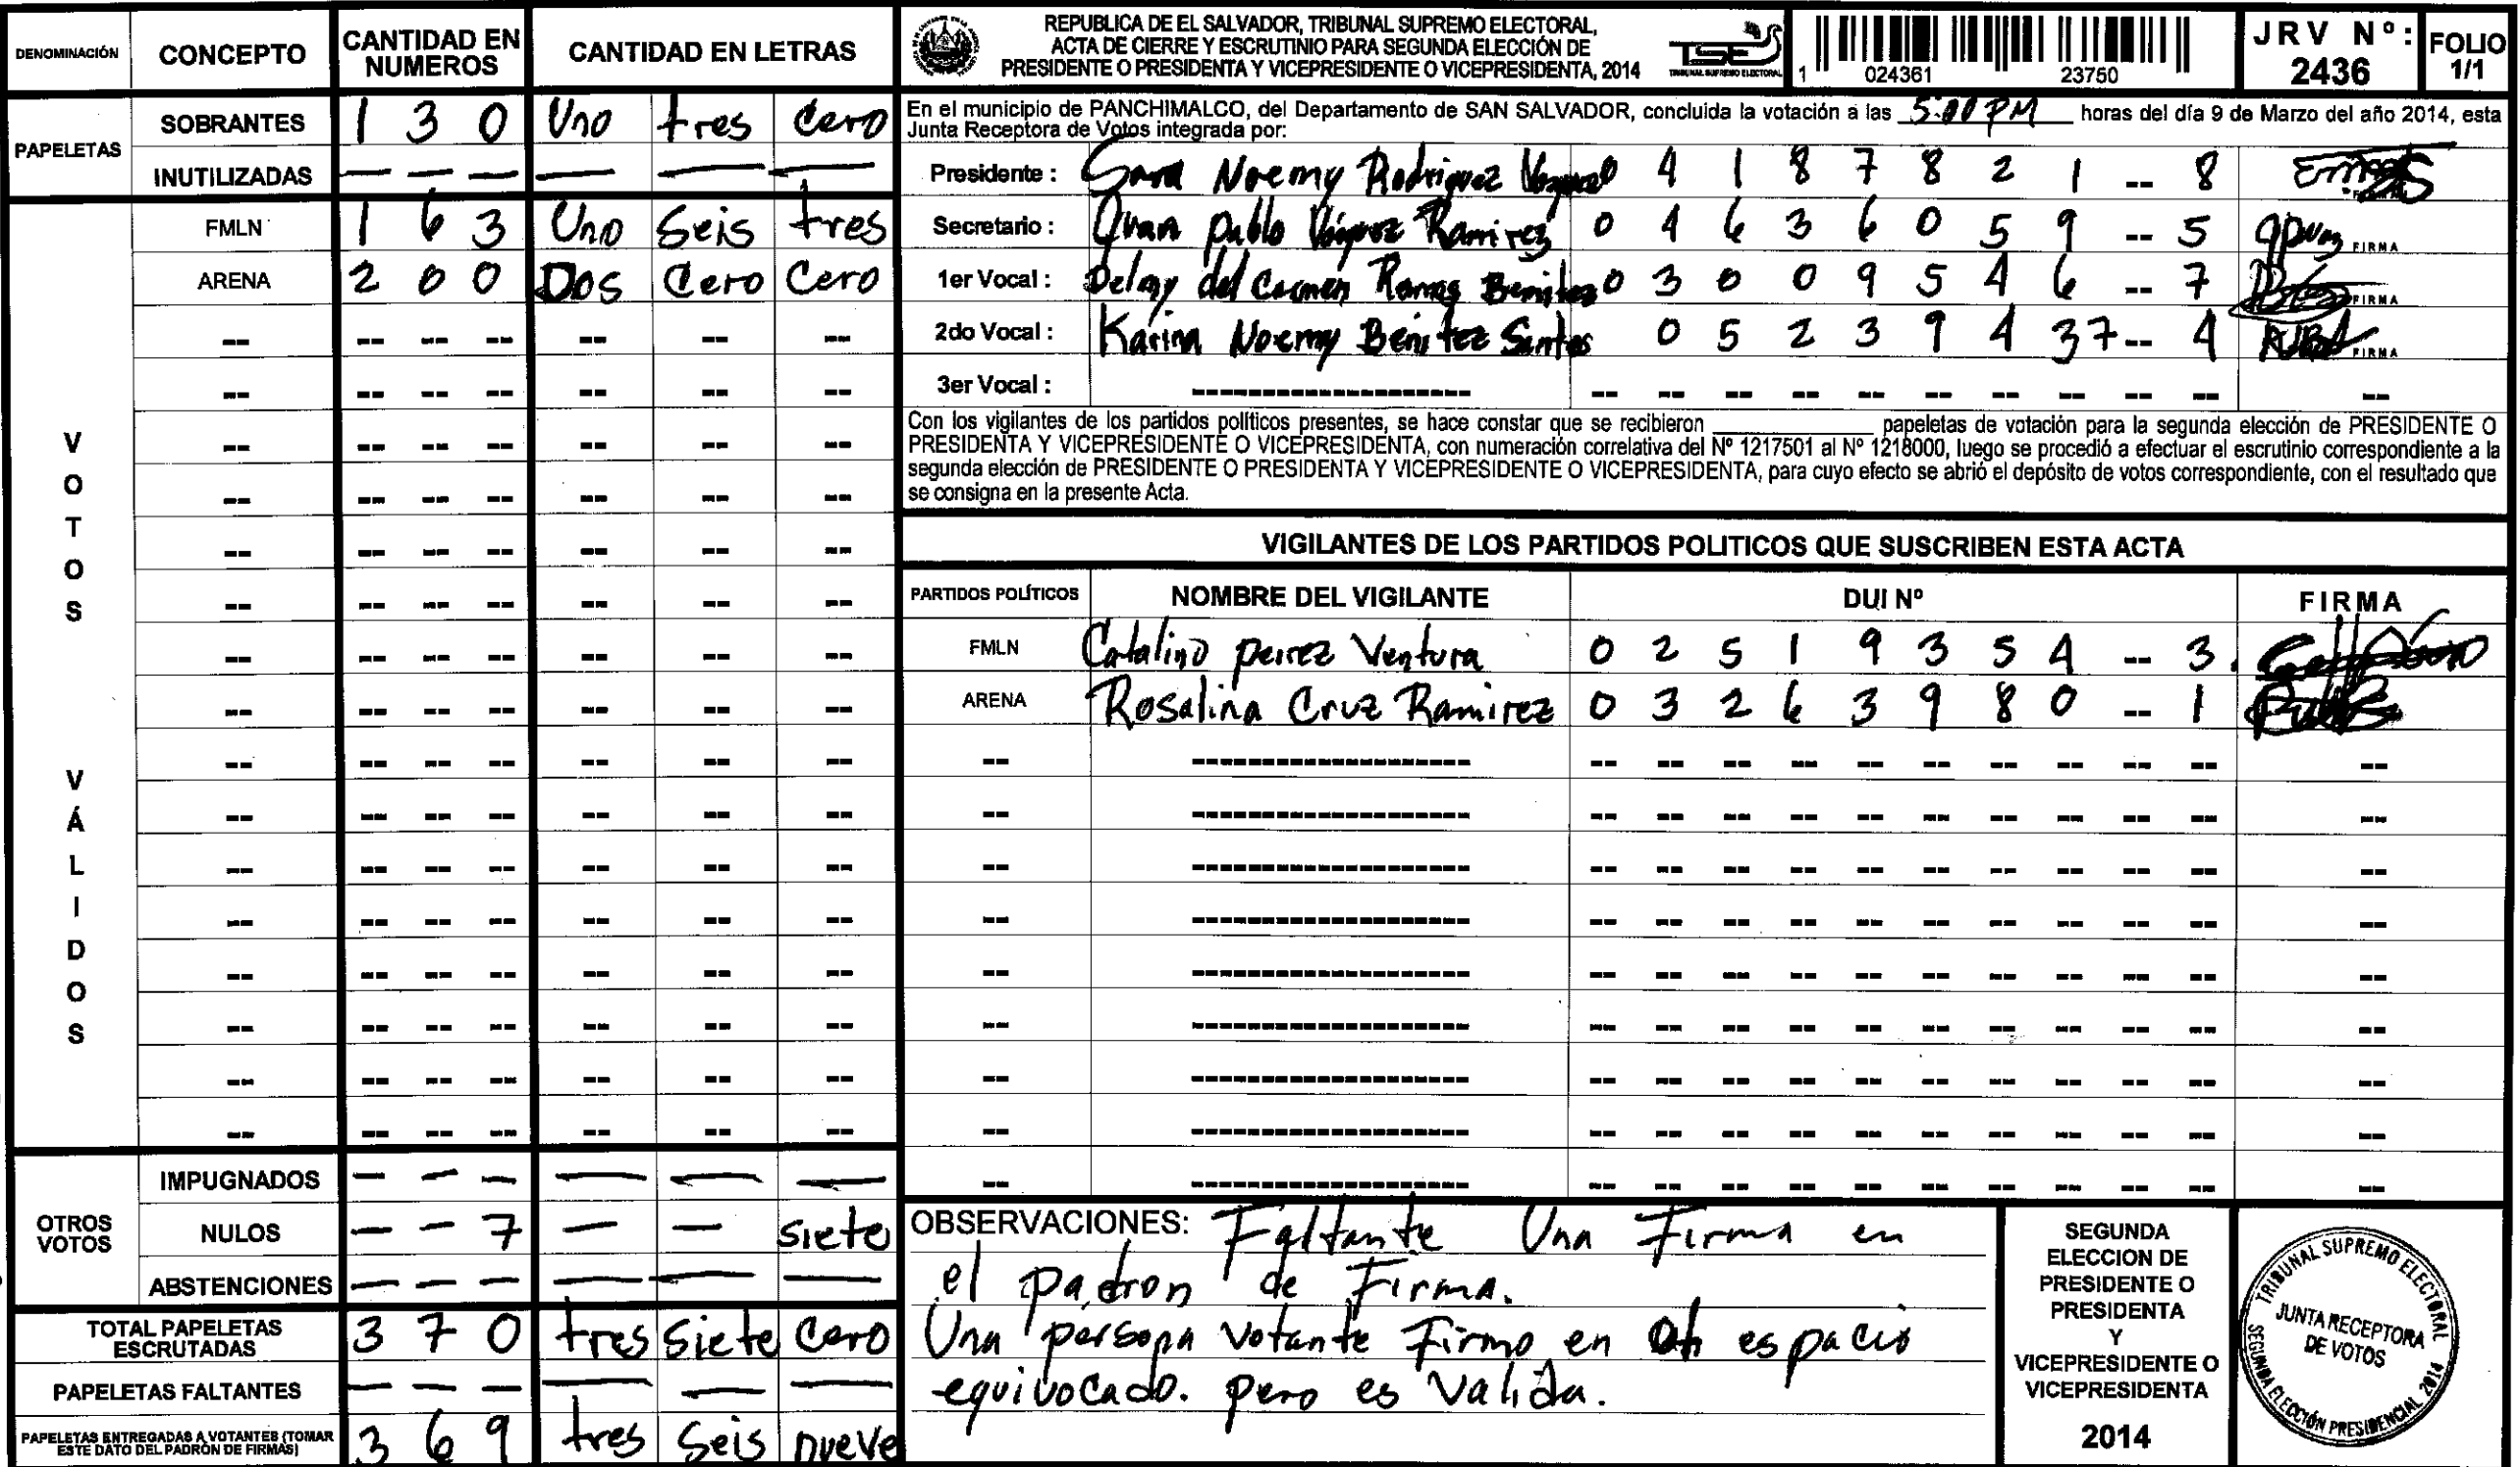 DENOMINACIÓN CONCEPTO CANTIDAD EN NUMEROS CANTIDAD EN LETRAS
PAPELETAS
SOBRANTES 1 3 0 Uno tres Cero
INUTILIZADAS — — — — — —
VOTOS VÁLIDOS
FMLN 1 6 3 Uno Seis tres
ARENA 2 0 0 Dos Cero Cero
OTROS VOTOS
IMPUGNADOS — — — — — —
NULOS — — 7 — — siete
ABSTENCIONES — — — — — —
TOTAL PAPELETAS ESCRUTADAS 3 7 0 tres Siete Cero
PAPELETAS FALTANTES — — — — — —
PAPELETAS ENTREGADAS A VOTANTES (TOMAR ESTE DATO DEL PADRÓN DE FIRMAS) 3 6 9 tres Seis nueve
REPUBLICA DE EL SALVADOR, TRIBUNAL SUPREMO ELECTORAL,
ACTA DE CIERRE Y ESCRUTINIO PARA SEGUNDA ELECCIÓN DE
PRESIDENTE O PRESIDENTA Y VICEPRESIDENTE O VICEPRESIDENTA, 2014
TSE
TRIBUNAL SUPREMO ELECTORAL
1 024361 23750
JRV Nº: 2436
FOLIO 1/1
En el municipio de PANCHIMALCO, del Departamento de SAN SALVADOR, concluida la votación a las 5:00 PM horas del día 9 de Marzo del año 2014, esta
Junta Receptora de Votos integrada por:
Presidente : Sara Noemy Rodriguez Vasquez 0 4 1 8 7 8 2 1 -- 8
Secretario : Juan Pablo Vásquez Ramirez 0 4 6 3 6 0 5 9 -- 5 FIRMA
1er Vocal : Delmy del Carmen Ramos Benitez 0 3 0 0 9 5 4 6 -- 7 FIRMA
2do Vocal : Karina Noemy Benitez Santos 0 5 2 3 9 4 3 7 -- 4 FIRMA
3er Vocal : ------------------- -- -- -- -- -- -- -- -- -- -- --
Con los vigilantes de los partidos políticos presentes, se hace constar que se recibieron ________ papeletas de votación para la segunda elección de PRESIDENTE O
PRESIDENTA Y VICEPRESIDENTE O VICEPRESIDENTA, con numeración correlativa del Nº 1217501 al Nº 1218000, luego se procedió a efectuar el escrutinio correspondiente a la
segunda elección de PRESIDENTE O PRESIDENTA Y VICEPRESIDENTE O VICEPRESIDENTA, para cuyo efecto se abrió el depósito de votos correspondiente, con el resultado que
se consigna en la presente Acta.
VIGILANTES DE LOS PARTIDOS POLITICOS QUE SUSCRIBEN ESTA ACTA
PARTIDOS POLÍTICOS NOMBRE DEL VIGILANTE DUI Nº FIRMA
FMLN Catalino perez Ventura 0 2 5 1 9 3 5 4 -- 3
ARENA Rosalina Cruz Ramirez 0 3 2 6 3 9 8 0 -- 1
OBSERVACIONES: Faltante Una Firma en
el padron de Firma.
Una persona votante Firmo en espacio
equivocado. pero es Valida.
SEGUNDA
ELECCION DE
PRESIDENTE O
PRESIDENTA
Y
VICEPRESIDENTE O
VICEPRESIDENTA
2014
TRIBUNAL SUPREMO ELECTORAL
JUNTA RECEPTORA
DE VOTOS
SEGUNDA ELECCIÓN PRESIDENCIAL 2014